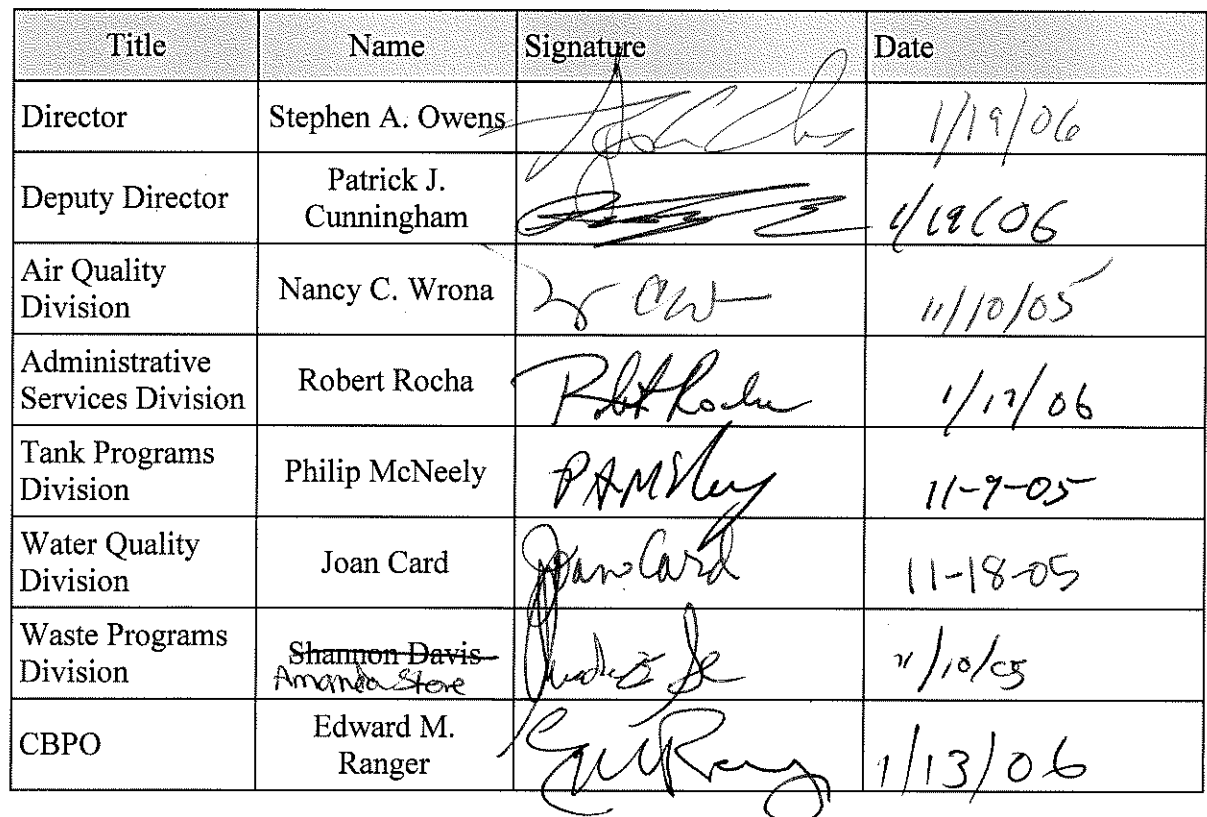 Title Name Signature Date
Director Stephen A. Owens 1/19/06
Deputy Director Patrick J.
Cunningham 1/19/06
Air Quality
Division Nancy C. Wrona 11/10/05
Administrative
Services Division Robert Rocha Robert Rocha 1/17/06
Tank Programs
Division Philip McNeely PAMcNeely 11-9-05
Water Quality
Division Joan Card Joan Card 11-18-05
Waste Programs
Division Shannon Davis
Amanda Stone 11/10/05
CBPO Edward M.
Ranger 1/13/06